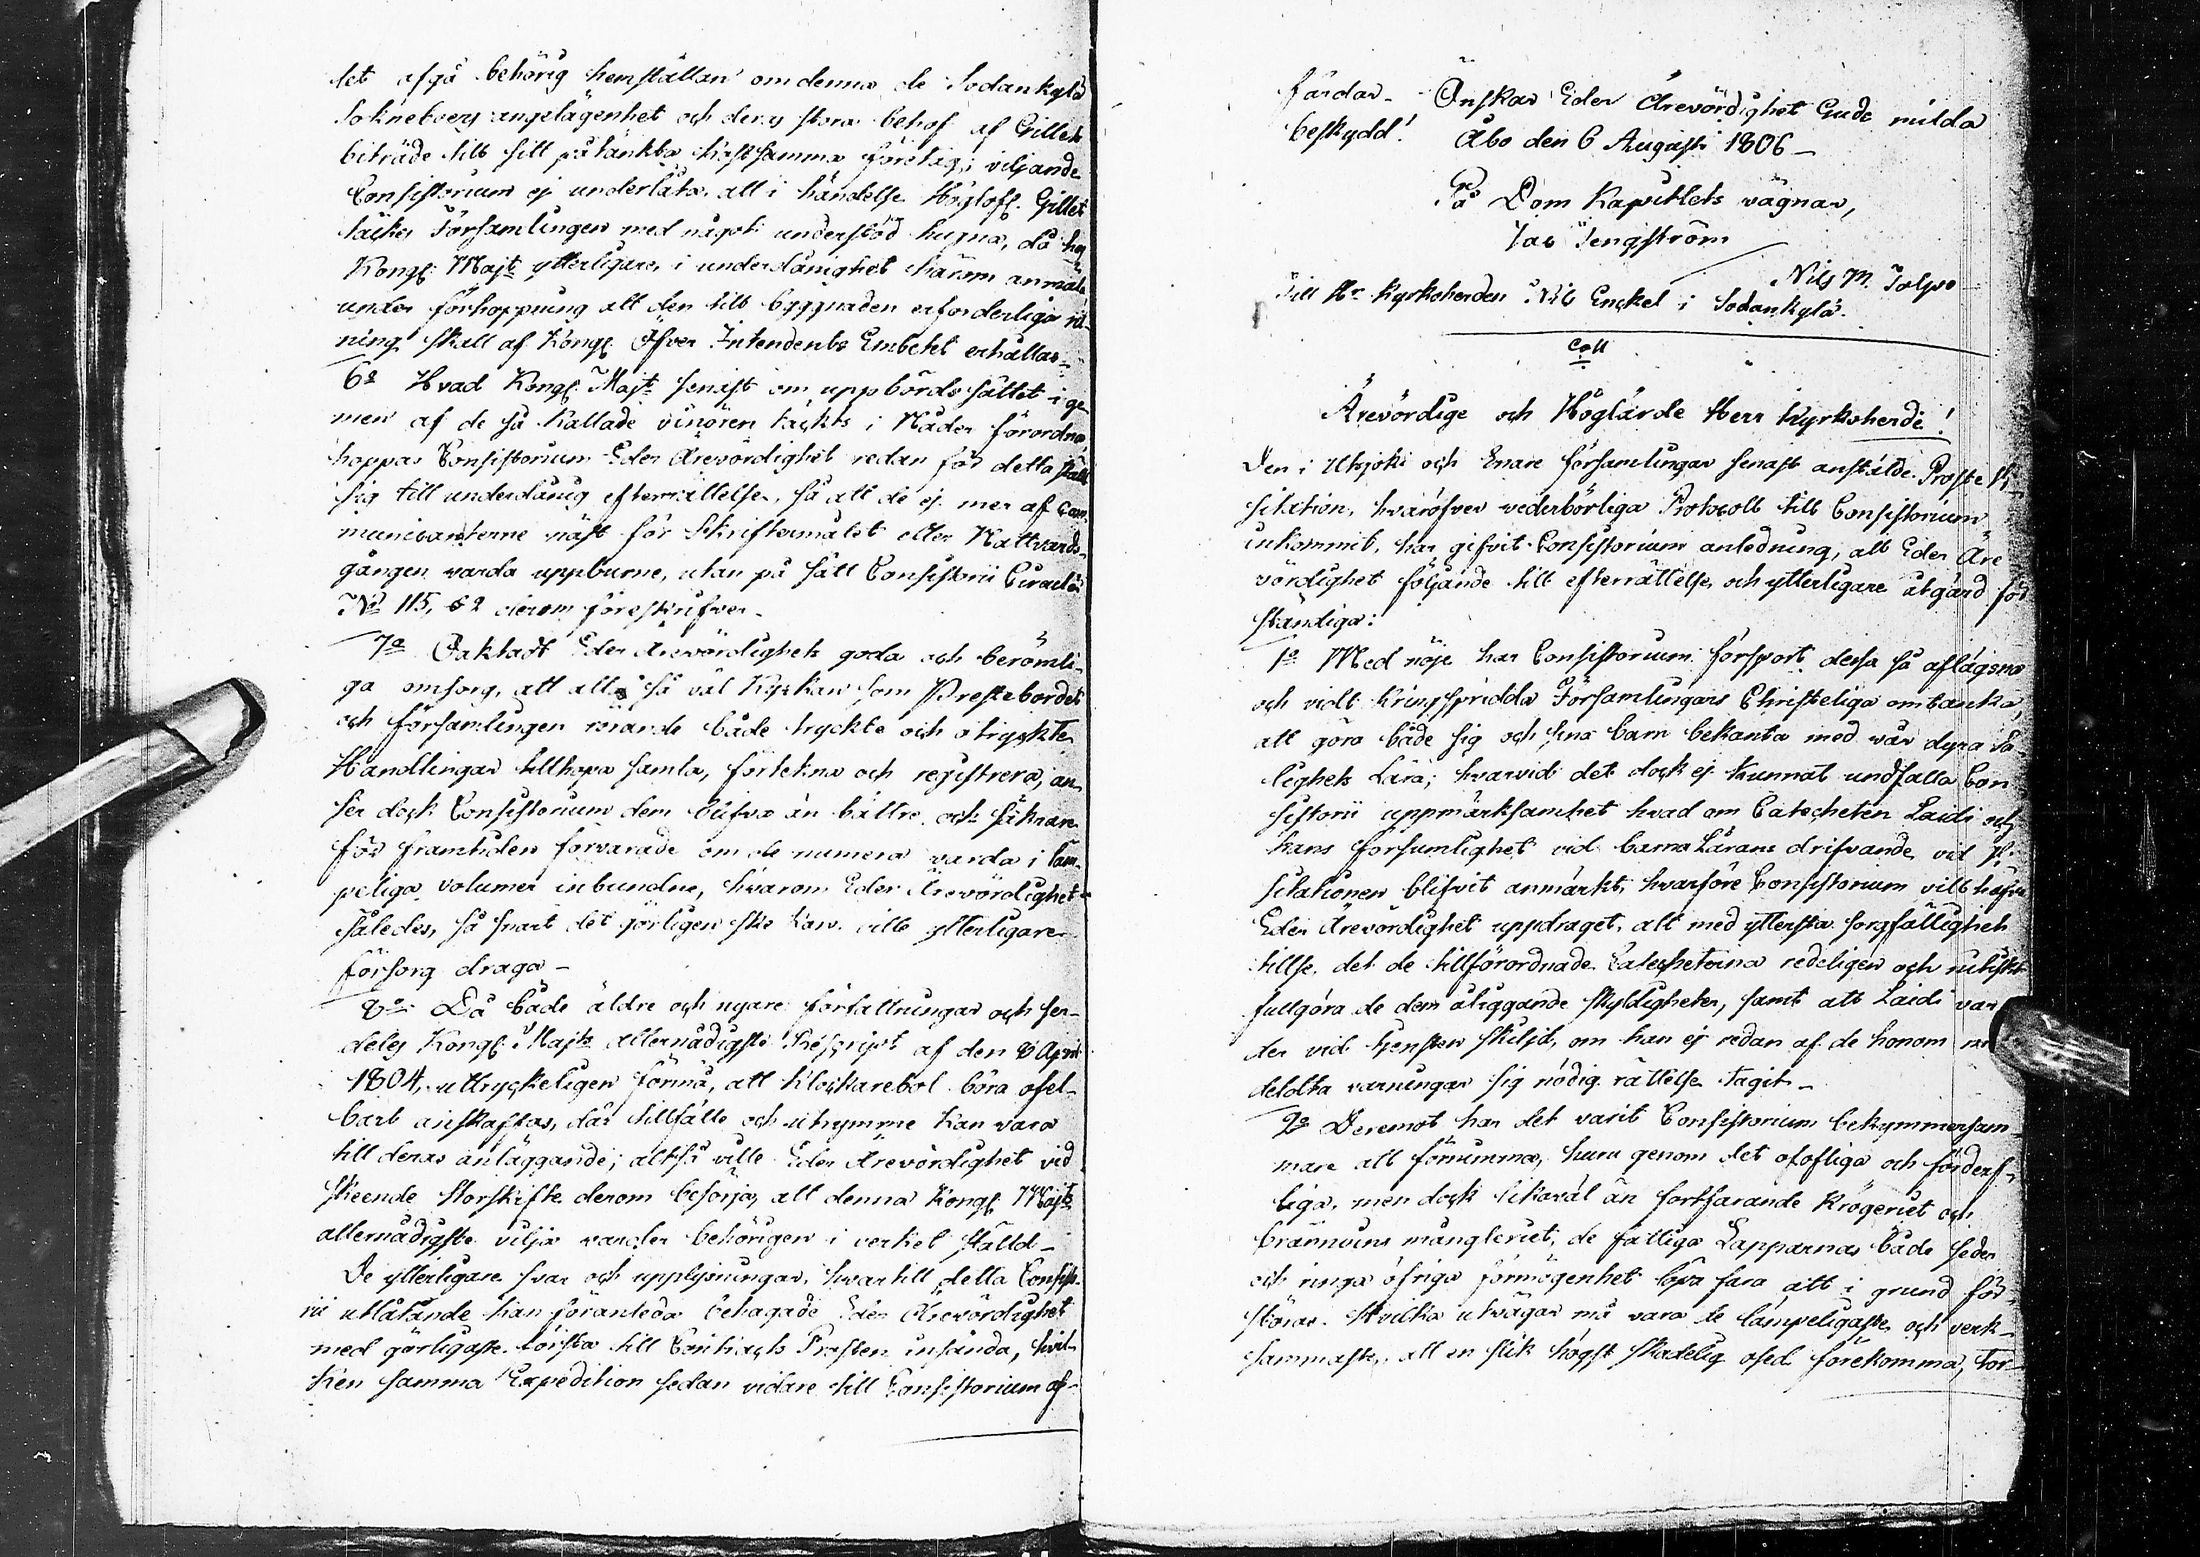 let afgå behörig hemställan om denna de Sodankylä
Sokneboers angelägenhet och deras stora behof af Gillets
biträde till sitt påtänkta kostsamma företag; viljande
Consistorium ej underlåta, att i händelse Höglofl. Gillet
täckes Församlingen med något understöd hugna, då hos
Kongl. Majt ytterligare, i underdånighet härom anmäla
under förhoppning att den till byggnaden erforderliga rit-
ning skall af Kongl. Öfver Intendents Embetet erhållas.
6o Hvad Kongl. Majt senast om uppbördssättet i ge-
men af de så kallade vinören täckts i Nåder förordna
hoppas Consistorium Eder Ärevördighet redan för detta ställt
sig till underdånig efterrättelse, så att de ej mer af Com-
municanterne näst för Skriftermålet eller Nattvards-
gången varda uppburne, utan på sätt Consistorii Circulär
No 115, § 2 derom föreskrifver.
7o Oaktadt Eder Ärevördighets goda och berömli-
ga omsorg, att alla så väl Kyrkan som Prestebordet
och församlingen rörande både tryckte och otryckte
Handlingar tillhopa samla, förtekna och registrera, an-
ser dock Consistorium dem blifva än bättre och säkrare
för framtiden förvarade om de numera varda i läm-
peliga volumer inbundne, hvarom Eder Ärevördighet
således, så snart det görligen ske kan ville ytterligare
försorg draga –
8o Då både äldre och nyare författningar och ser-
deles Kongl. Majts allernådigste Rescript af den 8 April
1804, uttryckeligen förmå, att klockarebol böra ofel-
bart anskaffas, där tillfälle och utrymme kan vara
till deras anläggande; altså ville Eder Ärevördighet vid
skeende Storskifte derom besörja, att denna Kongl. Majts
allernådigste vilja varder behörigen i verket ställd –
De ytterligare svar och upplysningar, hvartill detta Consisto-
rii utlåtande kan föranleda behagade Eder Ärevördighet
med görligaste första till Contracts Prosten insända, hvil-
ken samma Expedition sedan vidare till Consistorium af-
färdar. Önskar Eder Ärevördighet Guds milda
beskydd! Åbo den 6 Augusti 1806 –
På Dom Kapitlets vägnar,
Jac Tengström
Nils M. Tolpo
Till Hr Kyrkoherden Nils Enckel i Sodankylä.
Coll
Ärevördige och Höglärde Herr Kyrkoherde!
Den i Utsjoki och Enare församlingar senast anstälde Proste Vi-
sitation, hvaröfver vederbörliga Protocoll till Consistorium
inkommit, har gifvit Consistorium anledning, att Eder Äre
vördighet följande till efterrättelse, och ytterligare åtgärd för
ständiga:
1o Med nöje har Consistorium försport dessa så aflägsna
och vidt kringspridda Församlingars Christeliga omtanka,
att göra både sig och sina barn bekanta med vår dyra Sa-
lighets Lära; hvarvid det dock ej kunnat undfalla Con
sistorii uppmärksamhet hvad om Catecheten Laidi och
hans försumlighet vid barna Lärans drifvande, vid Vi-
sitationen blifvit anmärkt, hvarföre Consistorium vill hafva
Eder Ärevördighet uppdraget, att med yttersta sorgfällighet
tillse, det de tillförordnade Catecheterna redeligen och nitiskt
fullgöra de dem åliggande skyldigheter, samt att Laidi var
der vid tjensten skiljd, om han ej redan af de honom
delolta varningar sig nödig rättelse tagit –
2o Deremot har det varit Consistorium bekymmersam-
mare att förnimma, huru genom det olofliga och förderf-
liga, men dock likaväl än fortfarande Krögeriet och
brännvins mångleriet, de fattiga Lapparnas både seder
och ringa öfriga förmögenhet löpa fara att i grund för-
störas. Hvilka utvägar må vara de lämpeligaste och verk-
sammaste, att en slik högst skadelig osed förekomma, tor-